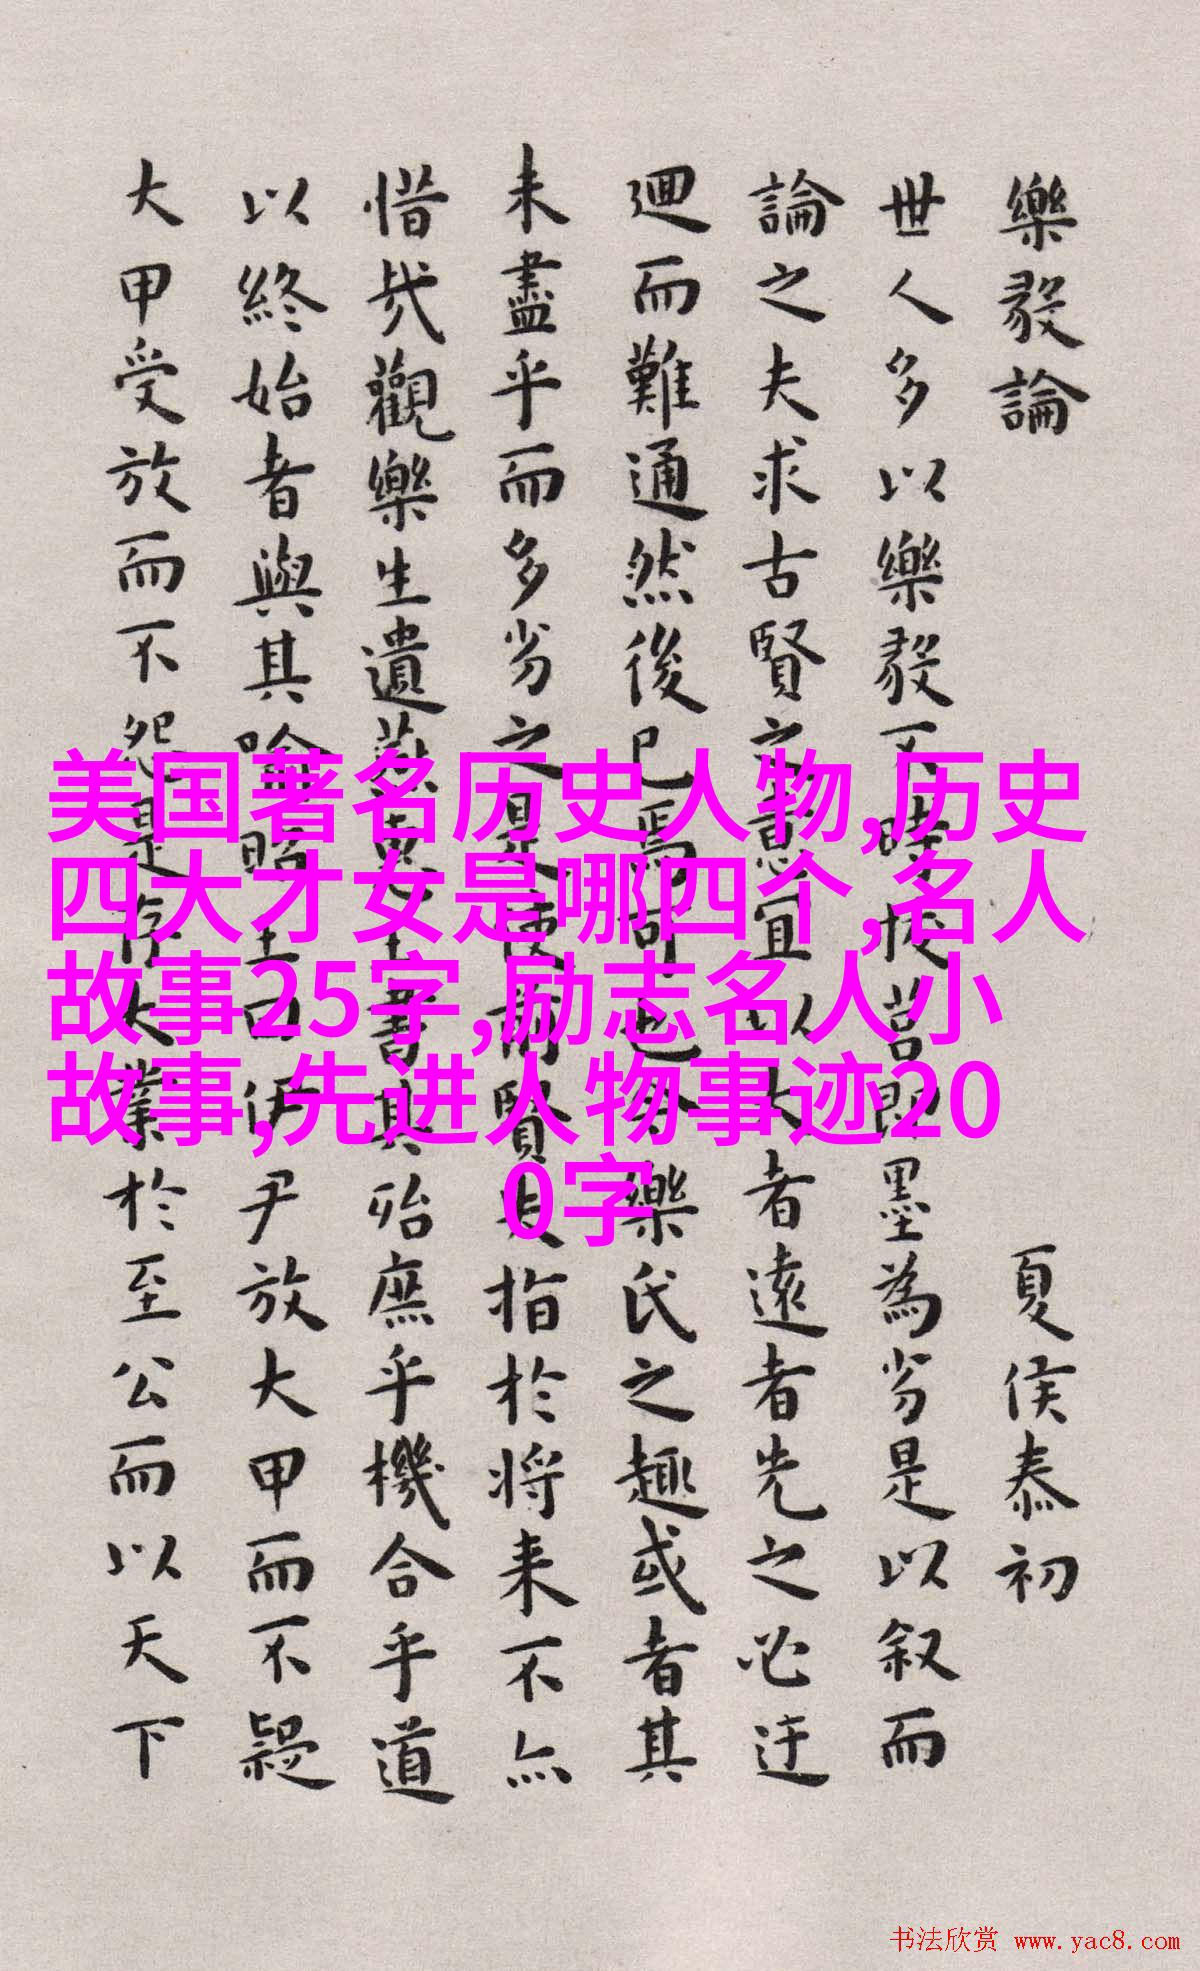 樂毅論 夏侯泰初
世人多以樂毅不時拔莒即墨為劣是以叙而
論之夫求古賢之意宜以大者遠者先之必迂
迴而難通然後已焉可也今樂氏之趣或者其
未盡乎而多劣之是使前賢失指於將来不亦
惜哉觀樂生遺燕惠王書其殆庶乎機合乎道
以終始者與其喻昭王曰伊尹放大甲而不疑
大甲受放而不怨是存大業於至公而以天下
美国著名历史人物,历史
四大才女是哪四个,名人
故事25字,励志名人小
故事,先进人物事迹20
0字
书法欣赏 www.yac8.com